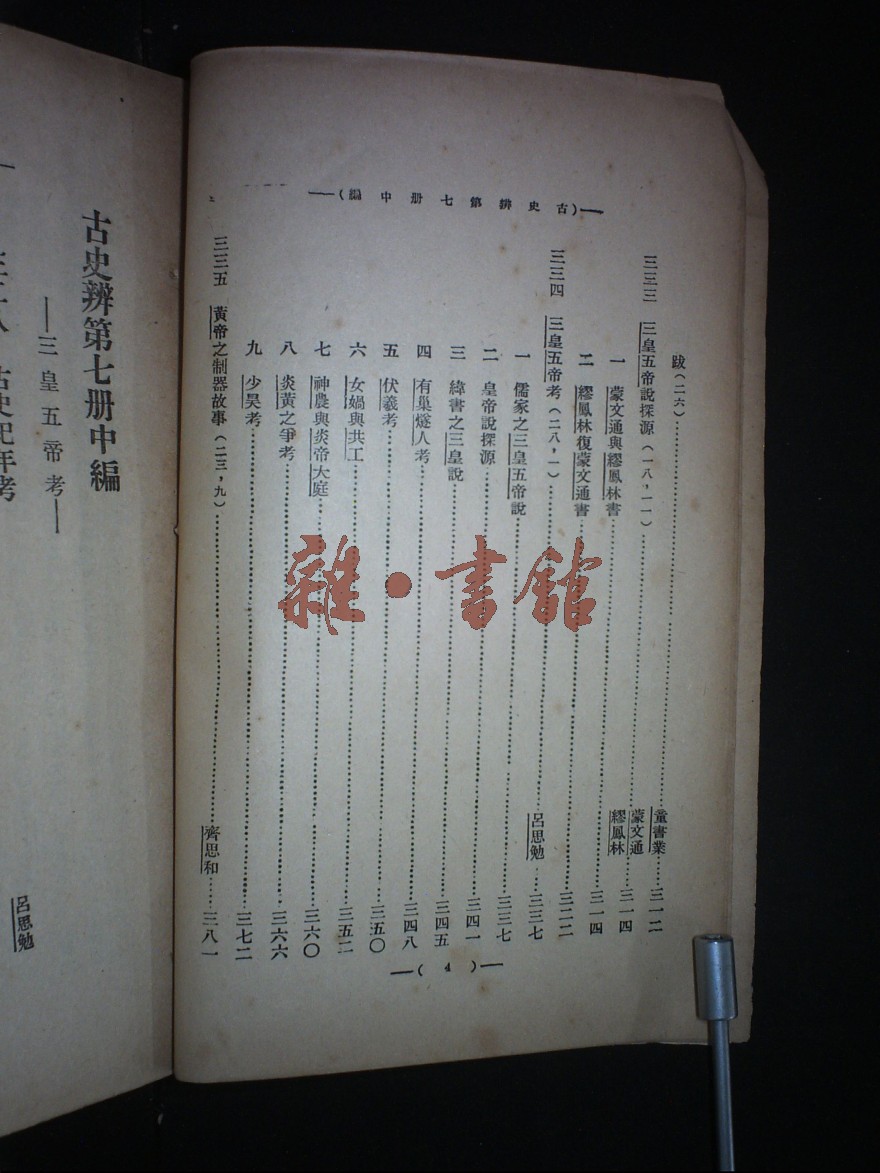 —(古史辨第七册中編)—
跋(二六)……童書業……三一二
三三三 三皇五帝說探源(一八,一一)……蒙文通 繆鳳林……三一四
一 蒙文通與繆鳳林書……三一四
二 繆鳳林復蒙文通書……三二二
三三四 三皇五帝考(二八,一)……呂思勉……三三七
一 儒家之三皇五帝說……三三七
二 皇帝說探源……三四一
三 緯書之三皇說……三四五
四 有巢燧人考……三四八
五 伏羲考……三五〇
六 女媧與共工……三五二
七 神農與炎帝大庭……三六〇
八 炎黃之爭考……三六六
九 少昊考……三七二
三三五 黃帝之制器故事(二三,九)……齊思和……三八一
—(4)—
雜·書館
古史辨第七册中編
—三皇五帝考—
古史紀年考
呂思勉